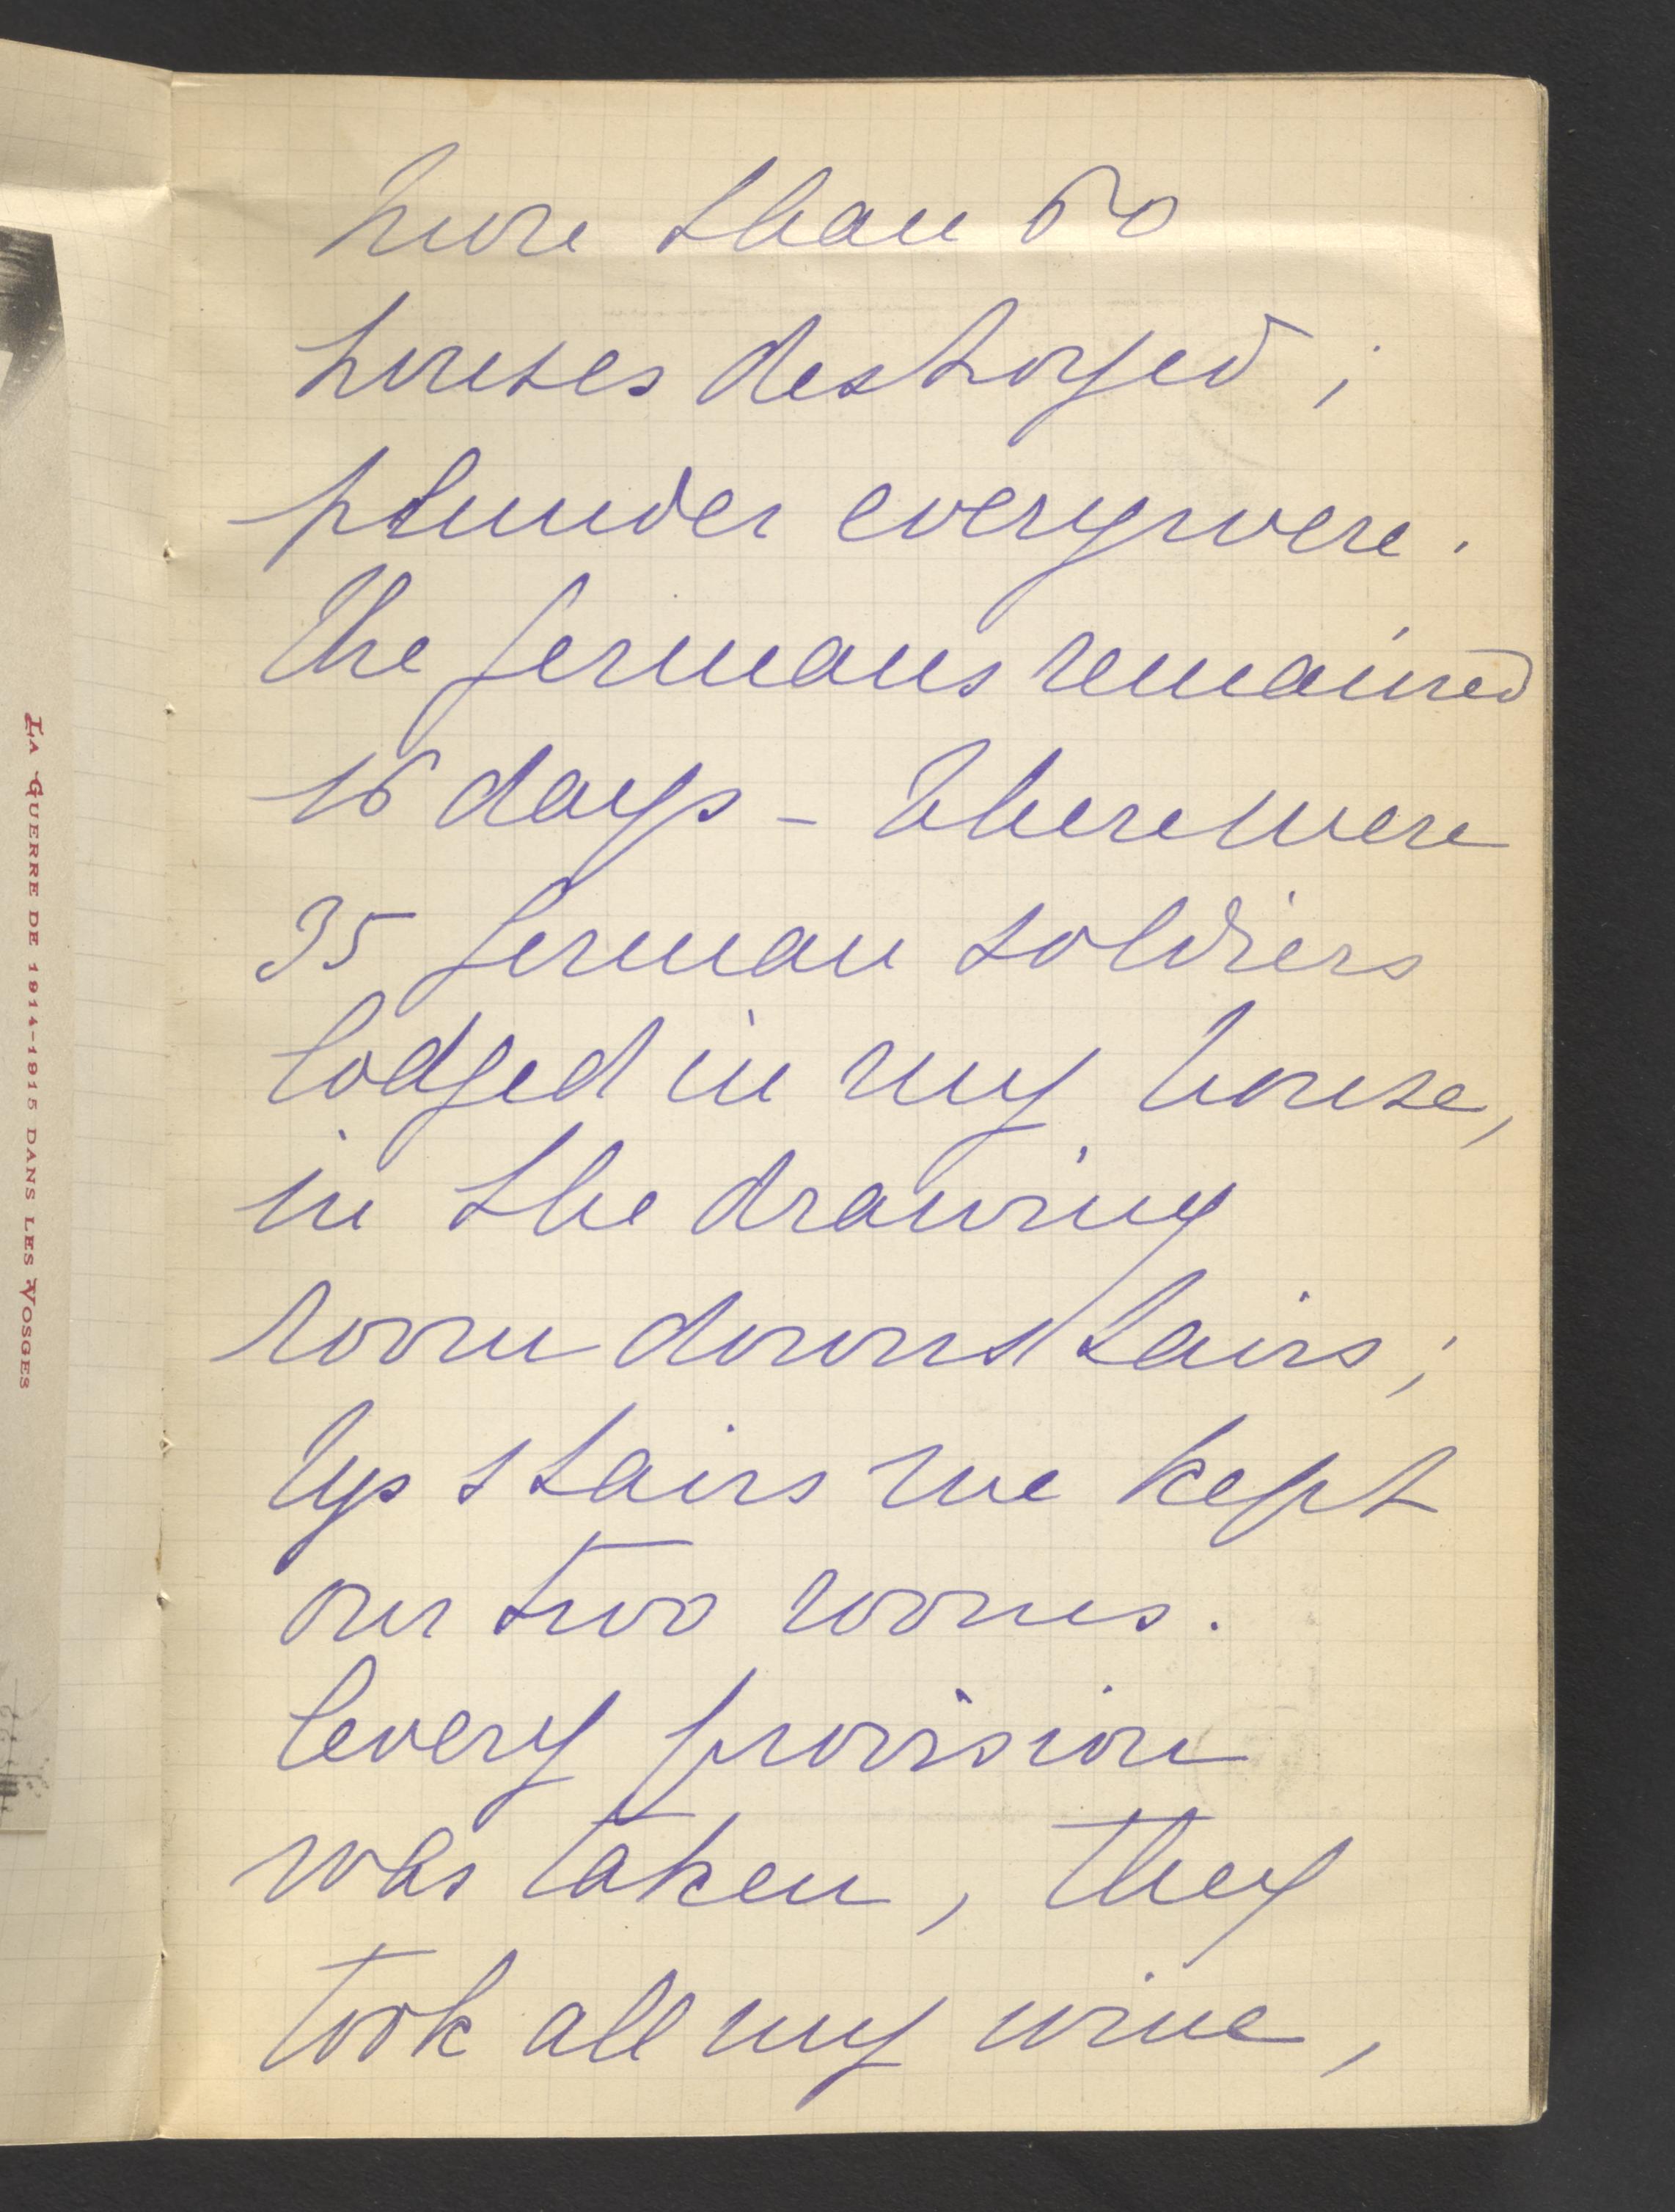 LA GUERRE DE 1914-1915 DANS LES VOSGES
more than 60
houses destroyed ;
plunder everywere .
The germans remained
16 days – There were
35 german soldiers
lodged in my house,
in the drawing
room downstairs ;
Up stairs we kept
our two rooms .
Every provision
was taken , they
took all my wine ,